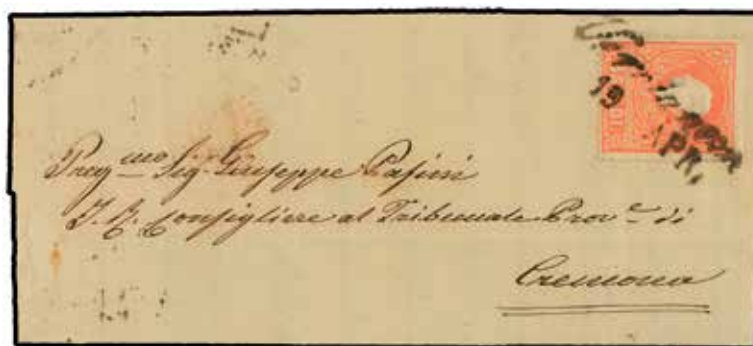 19
APR.
Preg.mo Sig. Giuseppe Pasini
I. R. Consigliere al Tribunale Prov.e di
Cremona